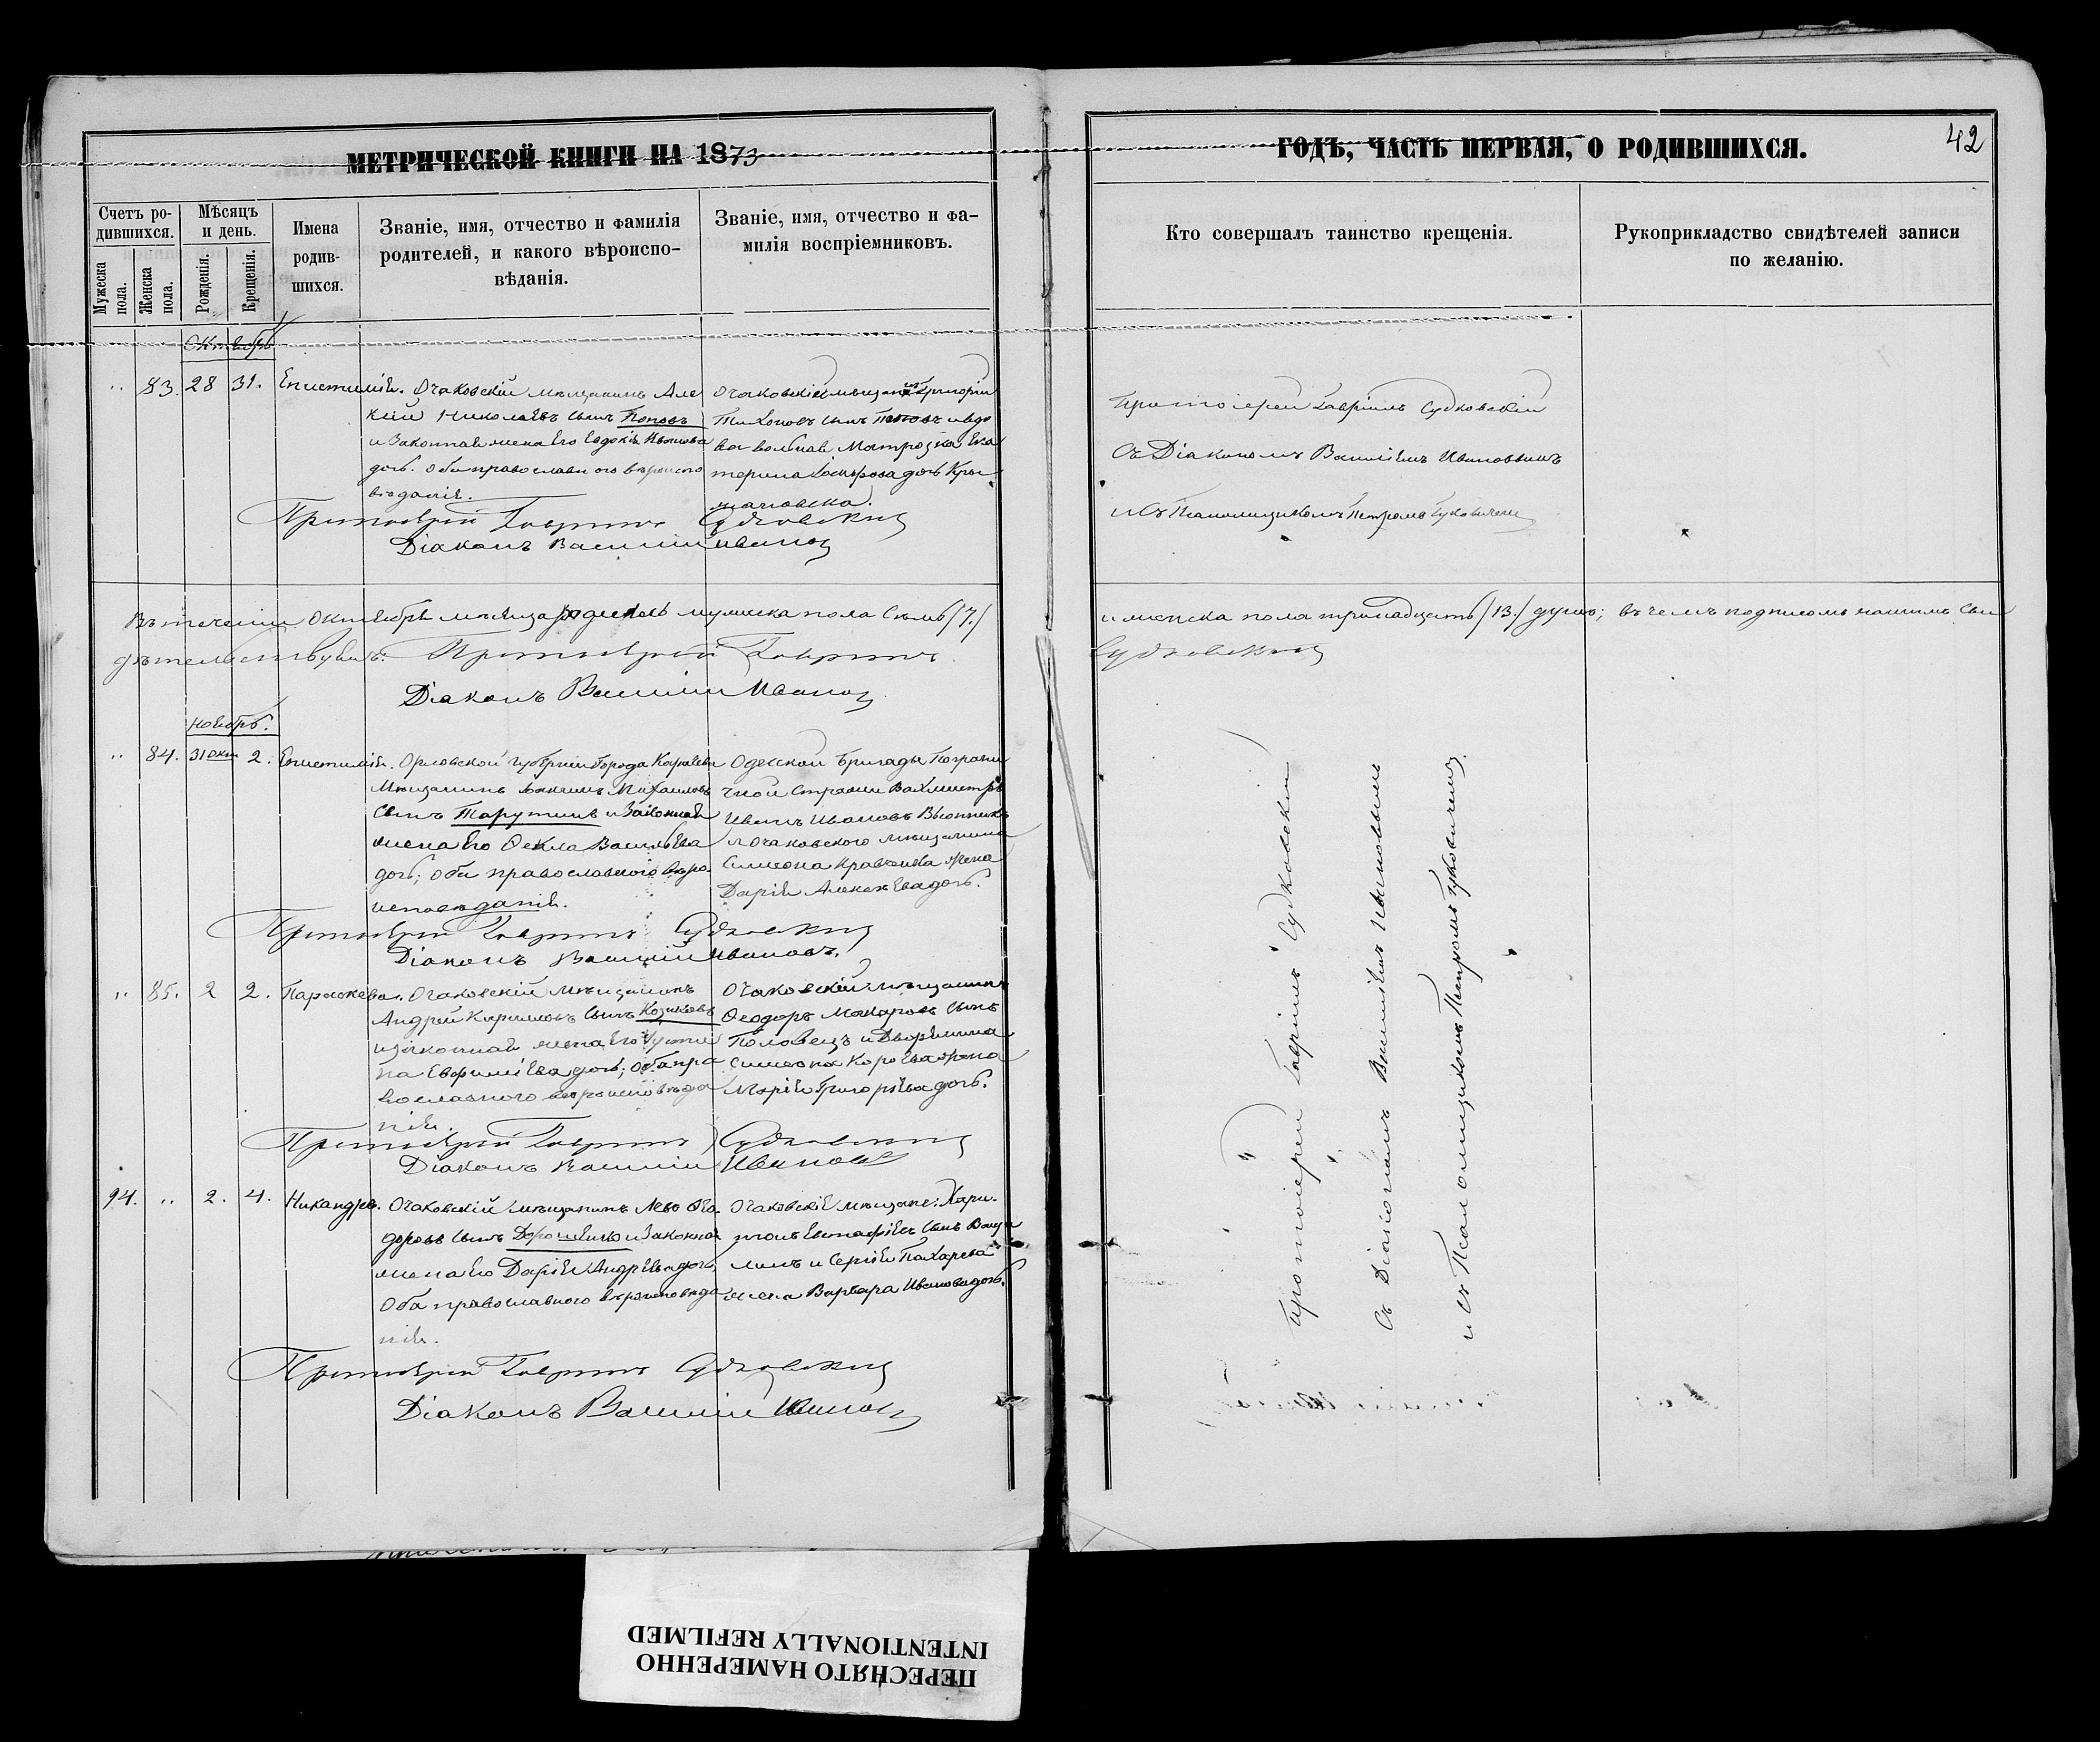 МЕТРИЧЕСКОЙ КНИГИ НА 1873
Счетъ ро-
дившихся.
Мужеска пола.
Женска пола.
Мѣсяцъ
и день.
Рожденія.
Крещенія.
Имена
родив-
шихся.
Званіе, имя, отчество и фамилія
родителей, и какого вѣроиспо-
вѣданія.
Званіе, имя, отчество и фа-
милія воспріемниковъ.
Октябрь
83. 28 31. Епистимія.
Очаковскій мѣщанинъ Але
ксій Николаевъ сынъ Поповъ
и законная жена его Евдокія Иванова
дочь. оба православного вѣроиспо
вѣданія.
Очаковскій мѣщанинъ Григорій
Тихоновъ сынъ Поповъ и вдо
ва вольная Матроска Ека
терина дочь
Протоіерей Гавріилъ Судковскій
Діаконъ Василій Ивановъ
Въ теченіи Октября мѣсяца родилось мужеска пола семь (7.)
дѣтельствуемъ: Протоіерей Гавріилъ
Діаконъ Василій Ивановъ
ноябрь.
84. 31 окт 2. Епистимія.
Орловской губерніи города Карачева
Мѣщанинъ Михаиловъ
сынъ Тарутинъ и законная
жена его Фекла Васильева
дочь; оба православного вѣро
исповѣданія.
Одесской бригады Пограни
чной стражи Вахмистръ
Иванъ Ивановъ
и очаковского мѣщанина
Симеона Кравченка жена
Дарія Алексѣева дочь.
Протоіерей Гавріилъ Судковскій
Діаконъ Василій Ивановъ.
85. 2 2. Параскева.
Очаковскій мѣщанинъ
Андрей Кириловъ сынъ
и законная жена его Усти
на Евфиміева дочь; оба пра
вославного вѣроисповѣда
нія.
Очаковскій мѣщанинъ
Феодоръ Макаровъ сынъ
Половецъ и Дворянина
Симеона жена
Марія Григоріева дочь.
Протоіерей Гавріилъ Судковскій
Діаконъ Василій Ивановъ
94. 2. 4. Никандръ.
Очаковскій мѣщанинъ Левъ Фео
доровъ сынъ Дорошенко и законная
жена его Дарія Андреева дочь,
Оба православного вѣроисповѣда
нія.
Очаковскіе мѣщане: Хари-
тонъ сынъ
и Сергія Пахарева
жена Варвара Иванова дочь.
Протоіерей Гавріилъ Судковскій
Діаконъ Василій Ивановъ
ГОДЪ, ЧАСТЬ ПЕРВАЯ, О РОДИВШИХСЯ.
42
Кто совершалъ таинство крещенія.
Рукоприкладство свидѣтелей записи
по желанію.
Протоіерей Гавріилъ Судковскій
съ Діакономъ Василіемъ Ивановымъ
и съ Псаломщикомъ Петромъ
и женска пола тринадцать (13.) душъ; въ чемъ подписомъ нашимъ сви
Судковскій
Протоіерей Гавріилъ Судковскій
съ Діакономъ Василіемъ Ивановымъ
и съ Псаломщикомъ Петромъ
ПЕРЕСНЯТО НАМЕРЕННО
INTENTIONALLY REFILMED